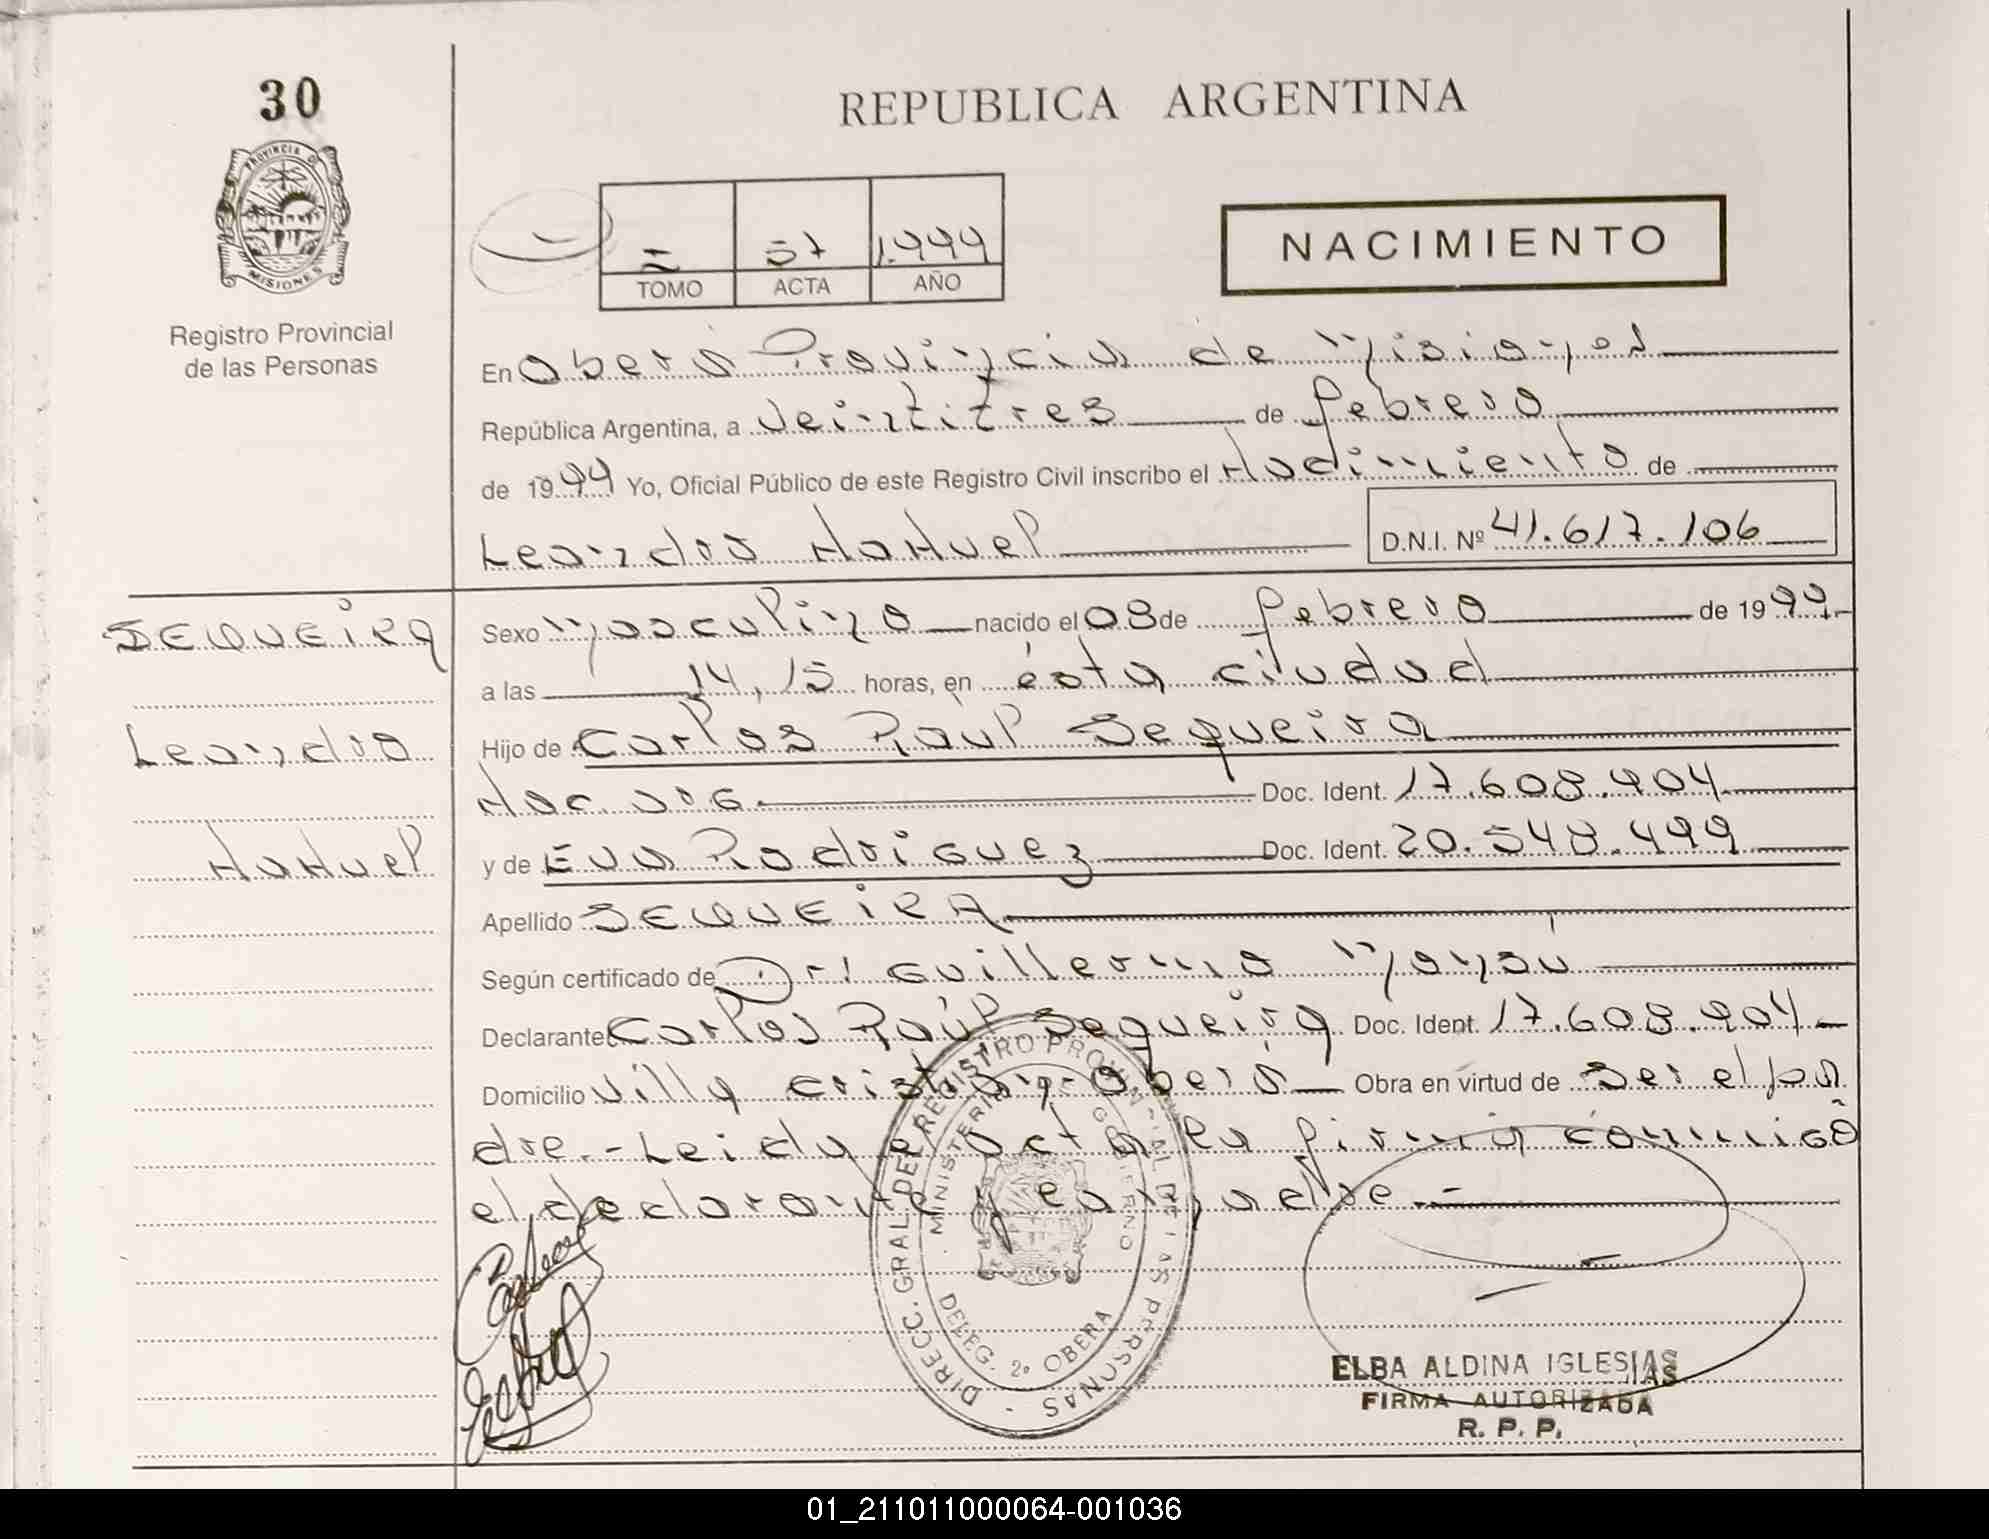 30
REPUBLICA ARGENTINA
PROVINCIA D
MISIONES
Registro Provincial
de las Personas
57 1.999
TOMO ACTA AÑO
NACIMIENTO
En Oberá Provincia de Misiones
República Argentina, a veintitres de febrero
de 1999 Yo, Oficial Público de este Registro Civil inscribo el Nacimiento de
Leandro NaHuel D.N.I. Nº 41.617.106
SEQUEIRA
Leandro
NaHuel
Sexo Masculino nacido el 08 de febrero de 1999
a las 14,15 horas, en ésta ciudad
Hijo de Carlos Raul Sequeira
Doc. Ident. 17.608.904
y de Eva Rodriguez Doc. Ident. 20.548.499
Apellido SEQUEIRA
Según certificado de Dr. Guillermo
Declarante Carlos Raúl Sequeira Doc. Ident. 17.608.904
Domicilio Villa Cristian-Oberá Obra en virtud de ser el pa
dre.- Leida el acta la firma conmigo
el declarante y la madre.-
DIRECC. GRAL. DE REGISTRO PROVINCIAL DE LAS PERSONAS -
MINISTERIO GOBIERNO
DELEG. 2º OBERA
ELBA ALDINA IGLESIAS
FIRMA AUTORIZADA
R. P. P.
01_211011000064-001036